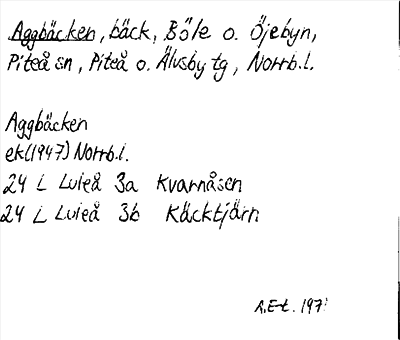 Aggbäcken, bäck, Böle o. Öjebyn,
Piteå sn, Piteå o. Älvsby tg, Norrb.l.
Aggbäcken
ek(1947) Norrb.l.
24 L Luleå 3a Kvarnåsen
24 L Luleå 3b Käcktjärn
A.E-t. 197